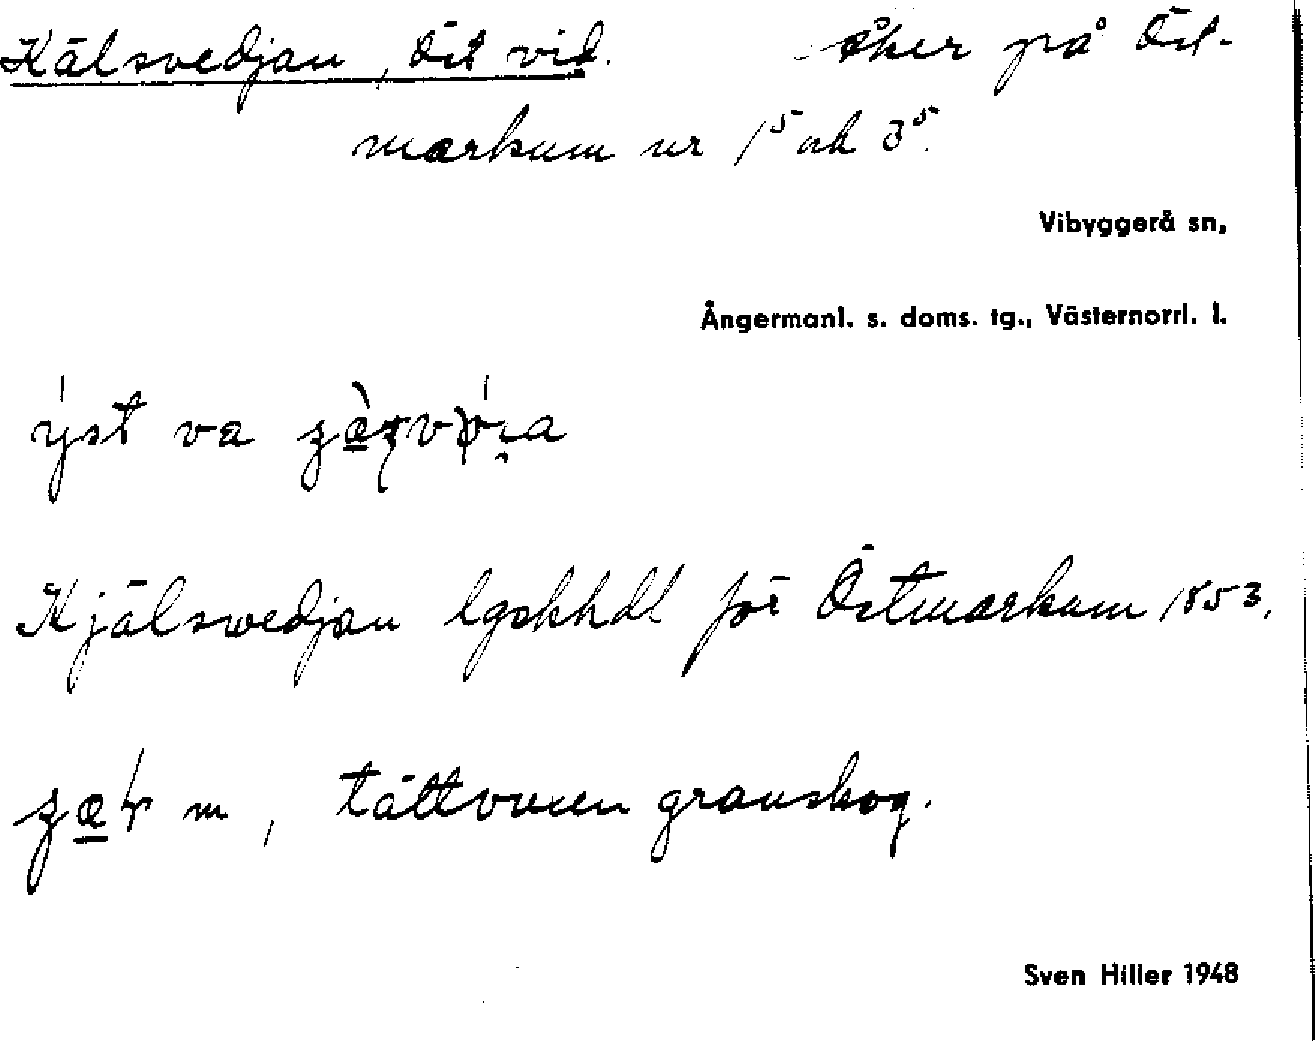 Kälsvedjan, Öst vid. Åker på Öst-
markum nr 1⁵ och 3⁵.
Vibyggerå sn,
Ångermanl. s. doms. tg., Västernorrl. l.
va
Kjälswedjan lgskhdl för Östmarkum 1853.
m, tättvuxen granskog.
Sven Hiller 1948